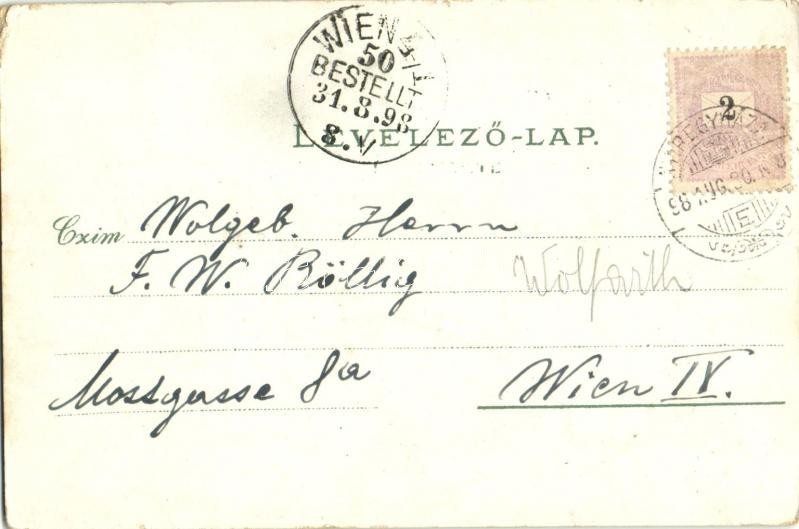 WIEN 4/1
50
BESTELLT
31.8.98
8.V
2
LEVELEZŐ-LAP.
98 AUG.30.
Czim Wolgeb. Herrn
F. W. Röllig
Wolfarth
Mossgasse 8a
Wien IV.